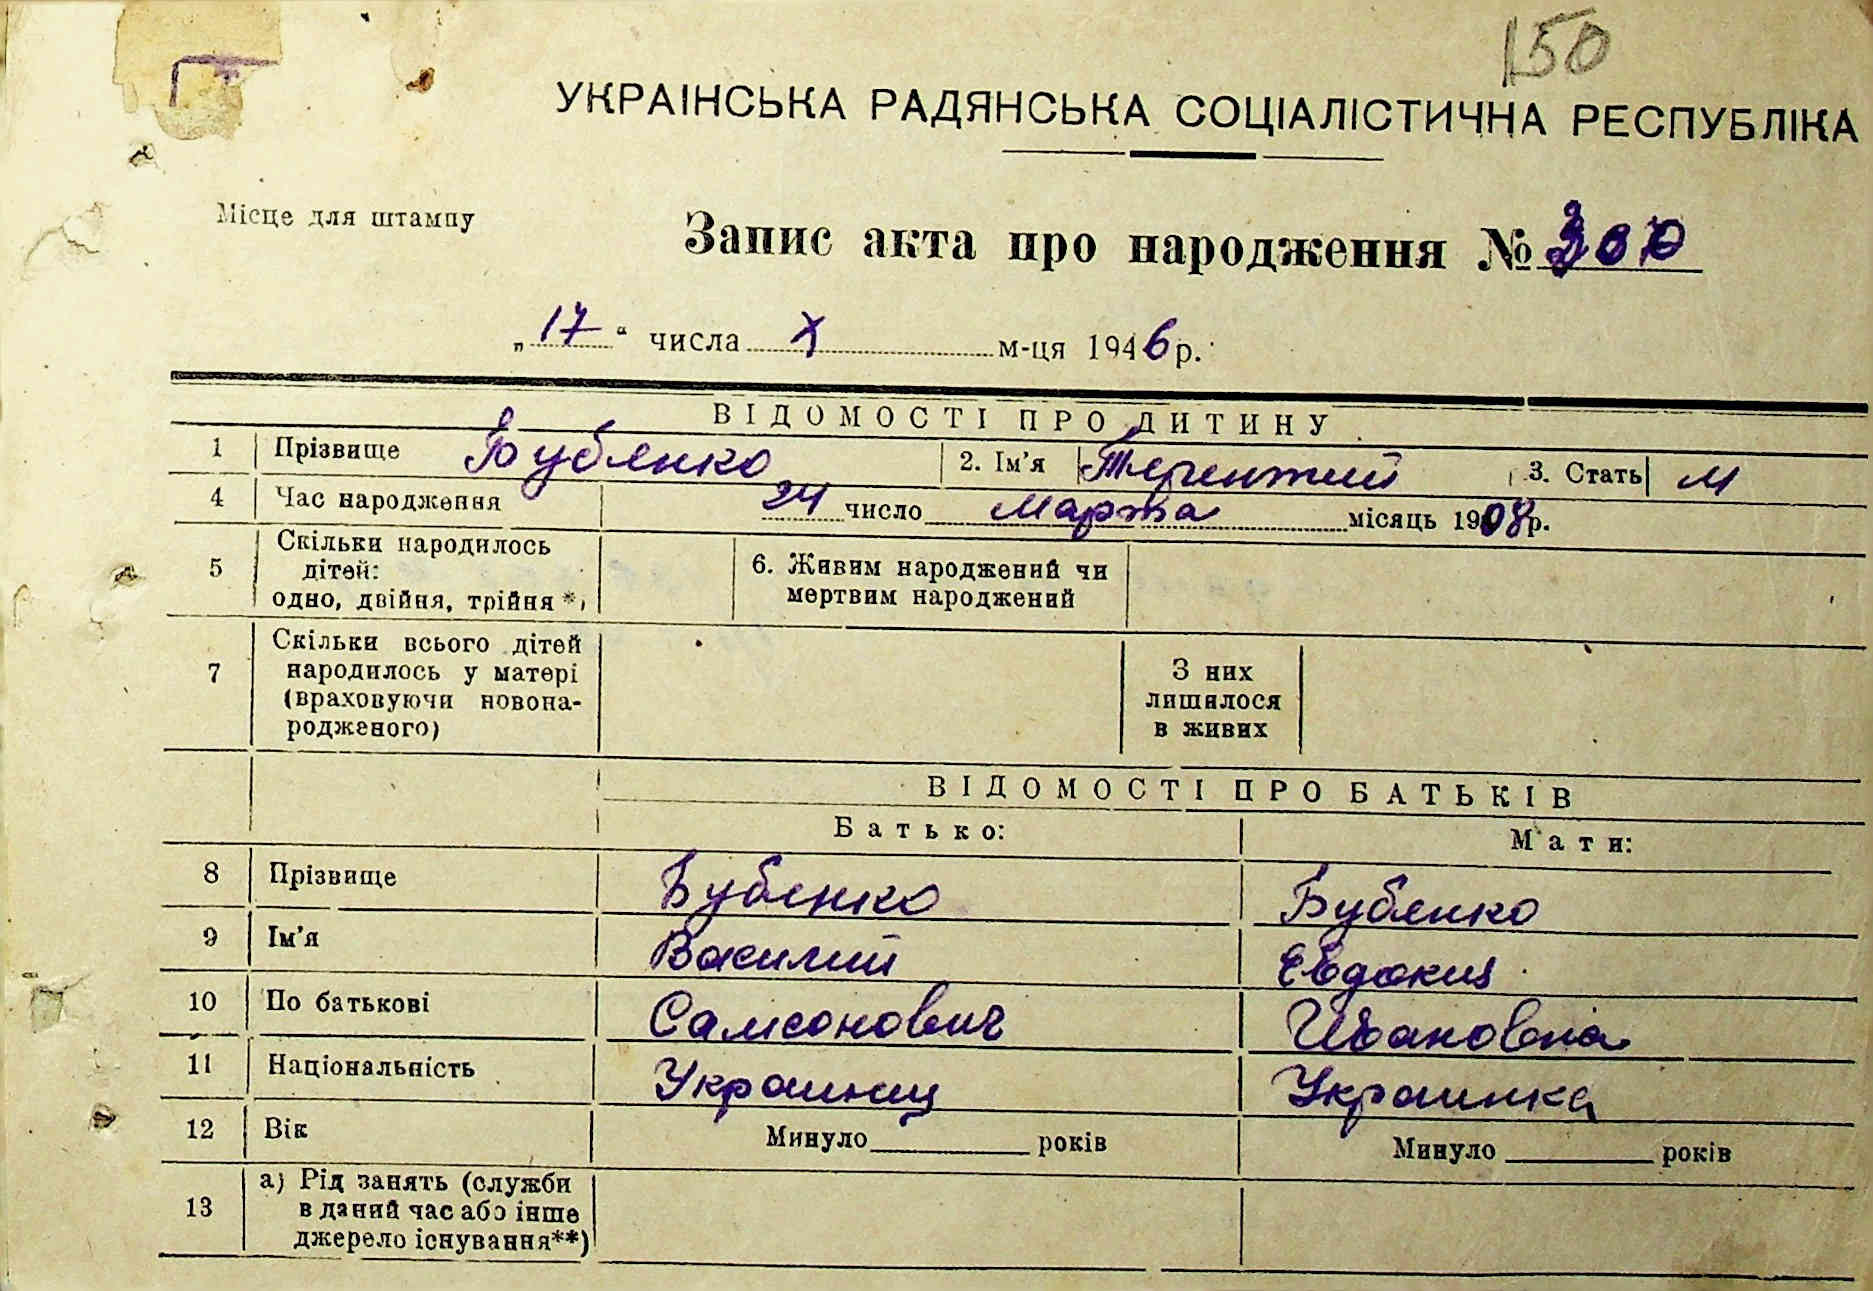 150
УКРАІНСЬКА РАДЯНСЬКА СОЦІАЛІСТИЧНА РЕСПУБЛІКА
Місце для штампу
Запис акта про народження № 300
„17“ числа X м-ця 1946 р.
ВІДОМОСТІ ПРО ДИТИНУ
1 Прізвище Бубенко 2. Ім'я Терентий 3. Стать М
4 Час народження 24 число Марта місяць 1908 р.
5 Скільки народилось дітей: одно, двійня, трійня *) 6. Живим народжений чи мертвим народжений
7 Скільки всього дітей народилось у матері (враховуючи новонародженого) З них лишилося в живих
ВІДОМОСТІ ПРО БАТЬКІВ
Батько: Мати:
8 Прізвище Бубенко Бубенко
9 Ім'я Василий Евдокия
10 По батькові Самсонович Ивановна
11 Національність Украинец Украинка
12 Вік Минуло років Минуло років
13 а) Рід занять (служби в даний час або інше джерело існування**)